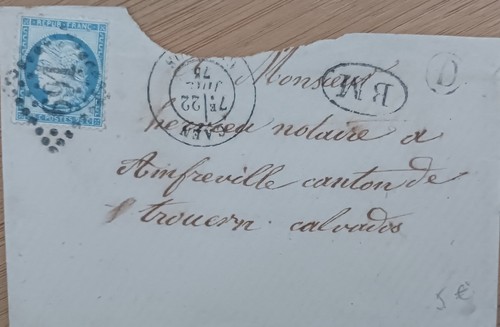 REPUB·FRANC·
POSTES
691
CAEN
7E 22
JUIL
75
B M
D
Monsieur
notaire a
Amfreville canton de
trouern. calvados
5 €